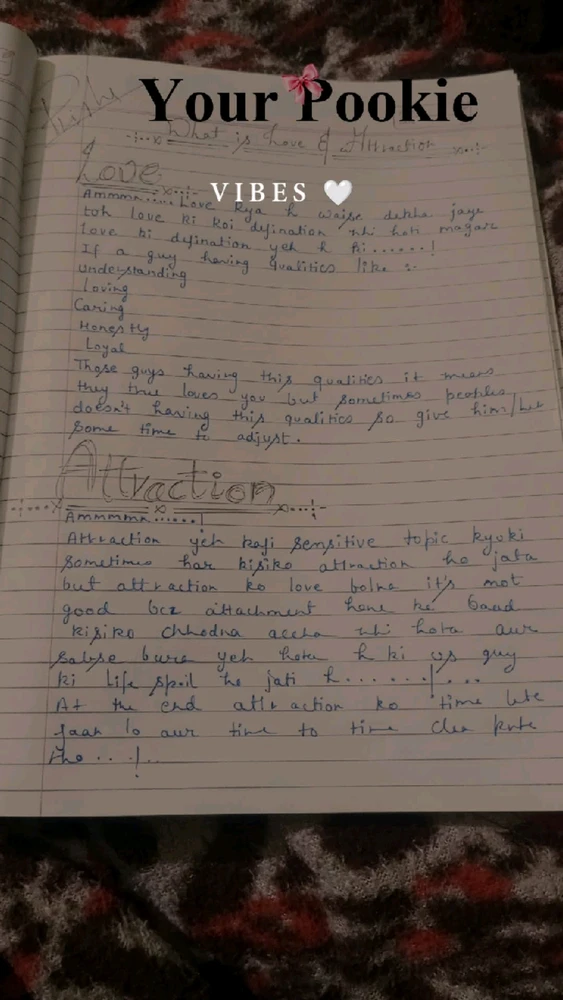 Your Pookie
What is Love & Attraction
Love
VIBES 🤍
Ammmm..... Love kya h waise dekha jaye
toh love ki koi defination nhi hoti magar
Love ki defination yeh h ki......!
If a guy having qualities like :-
understanding
Loving
Caring
Honestly
Loyal
Those guys having this qualities it means
they true loves you but sometimes peoples
doesn't having this qualities so give him/her
some time to adjust.
Attraction
Ammmmm......!
Attraction yeh kafi sensitive topic kyuki
sometimes har kisiko attraction ho jata
but attraction ko love bolna it's not
good bcz attachment hone ke baad
kisiko chhodna accha nhi hota aur
sabse bura yeh hota h ki us guy
ki life spoil ho jati h......!...
At the end attraction ko time
jaan lo aur time to time
rho...!..